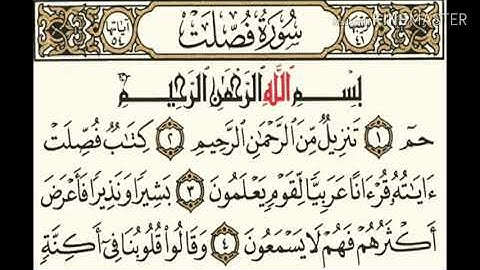 سُورَةُ فُصِّلَتْ
آياتها ٥٤
بِسْمِ ٱللَّهِ ٱلرَّحْمَٰنِ ٱلرَّحِيمِ
حمٓ ١ تَنزِيلٌ مِّنَ ٱلرَّحْمَٰنِ ٱلرَّحِيمِ ٢ كِتَٰبٌ فُصِّلَتْ
ءَايَٰتُهُۥ قُرْءَانًا عَرَبِيًّا لِّقَوْمٍ يَعْلَمُونَ ٣ بَشِيرًا وَنَذِيرًا فَأَعْرَضَ
أَكْثَرُهُمْ فَهُمْ لَا يَسْمَعُونَ ٤ وَقَالُوا۟ قُلُوبُنَا فِىٓ أَكِنَّةٍ